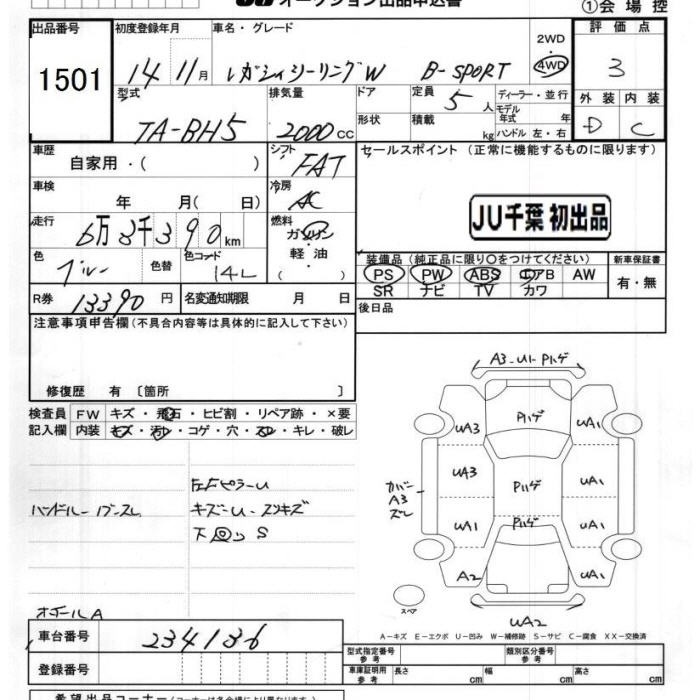 オークション出品申込書
①会場控
出品番号
1501
初度登録年月
14 11月
車名・グレード
レガシィツーリングW B-SPORT
2WD
4WD
評価点
3
型式
TA-BH5
排気量
2000 cc
ドア
形状
定員 5 人
積載 kg
ディーラー・並行
モデル年式 年
ハンドル 左・右
外装 内装
D C
車歴
自家用・( )
シフト
FAT
セールスポイント (正常に機能するものに限ります)
車検
年 月( 日)
冷房
AC
JU千葉 初出品
走行
6万 3千 3 9 0 km
燃料
ガソリン
軽油
色
ブルー
色替
色コード
14L
装備品 (純正品に限り○をつけてください)
新車保証書
PS PW ABS エアB AW
SR ナビ TV カワ
有・無
R券 13390 円
名変通知期限 月 日
後日品
注意事項申告欄 (不具合内容等は具体的に記入して下さい)
修復歴 有 〔箇所 〕
検査員
記入欄
FW キズ・飛石・ヒビ割・リペア跡・×要
内装 キズ・汚レ・コゲ・穴・スレ・キレ・破レ
左Fピラーu
ハンドルーハースレ
キズーu-スリキズ
下回リS
オイールA
A3-U1-Pハゲ
Pハゲ
UA3
UA1
UA3
Pハゲ
UA1
カバー
A3
ズレ
UA1
Pハゲ
UA1
A2
UA1
スペア
UA2
A-キズ E-エクボ U-凹み W-補修跡 S-サビ C-腐食 XX-交換済
車台番号
234136
登録番号
型式指定番号
参考
類別区分番号
参考
車庫証明用
参考
長さ cm
幅 cm
高さ cm
希望出品コーナー